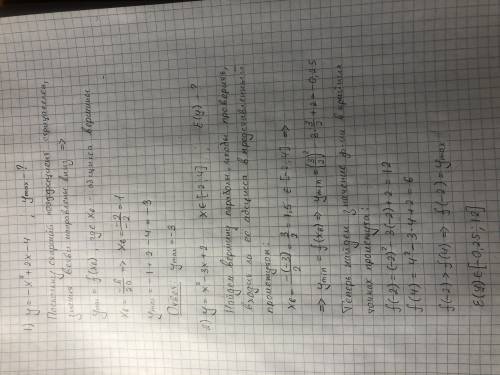 1) y = -x² + 2x - 4 , yмах - ?
Поскольку старший коэффициент отрицателен,
ветви направлены вниз =>
yмах = f(xв), где xв - абцисса вершины
xв = -b/2a => xв = -2/-2 = 1
yмах = -1 + 2 - 4 = -3
Ответ: yмах = -3
2) y = x² - 3x + 2 x∈[-2;4] E(y) - ?
Найдем вершину параболы, чтобы проверить,
входит ли её абцисса в представленный
промежуток:
xв = -(-3)/2 = 3/2 = 1,5 ∈ [-2;4] =>
=> ymin = f(xв) => ymin = (3/2)² - 3·3/2 + 2 = -0,25
Теперь найдем значение ф-ии в крайних
точках промежутка:
f(-2) = (-2)² - 3(-2) + 2 = 12
f(4) = 4² - 3·4 + 2 = 6
f(-2) > f(4) => f(-2) = yмах
E(y)∈[-0,25; 12]